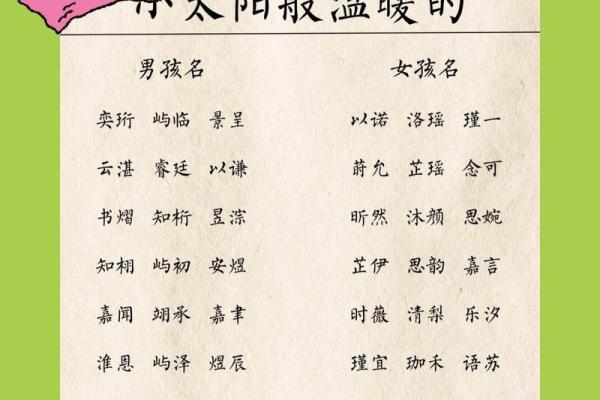 小太阳般温暖的
男孩名 女孩名
奕珩 屿临 景呈 以诺 洛瑶 瑾一
云湛 睿廷 以谦 莳允 芷瑶 念可
书熠 知桁 昱淙 昕然 沐颜 思婉
知栩 屿初 安煜 芷伊 思韵 嘉言
嘉闻 翊承 嘉聿 时薇 清梨 乐汐
淮恩 屿泽 煜辰 瑾宜 珈禾 语苏